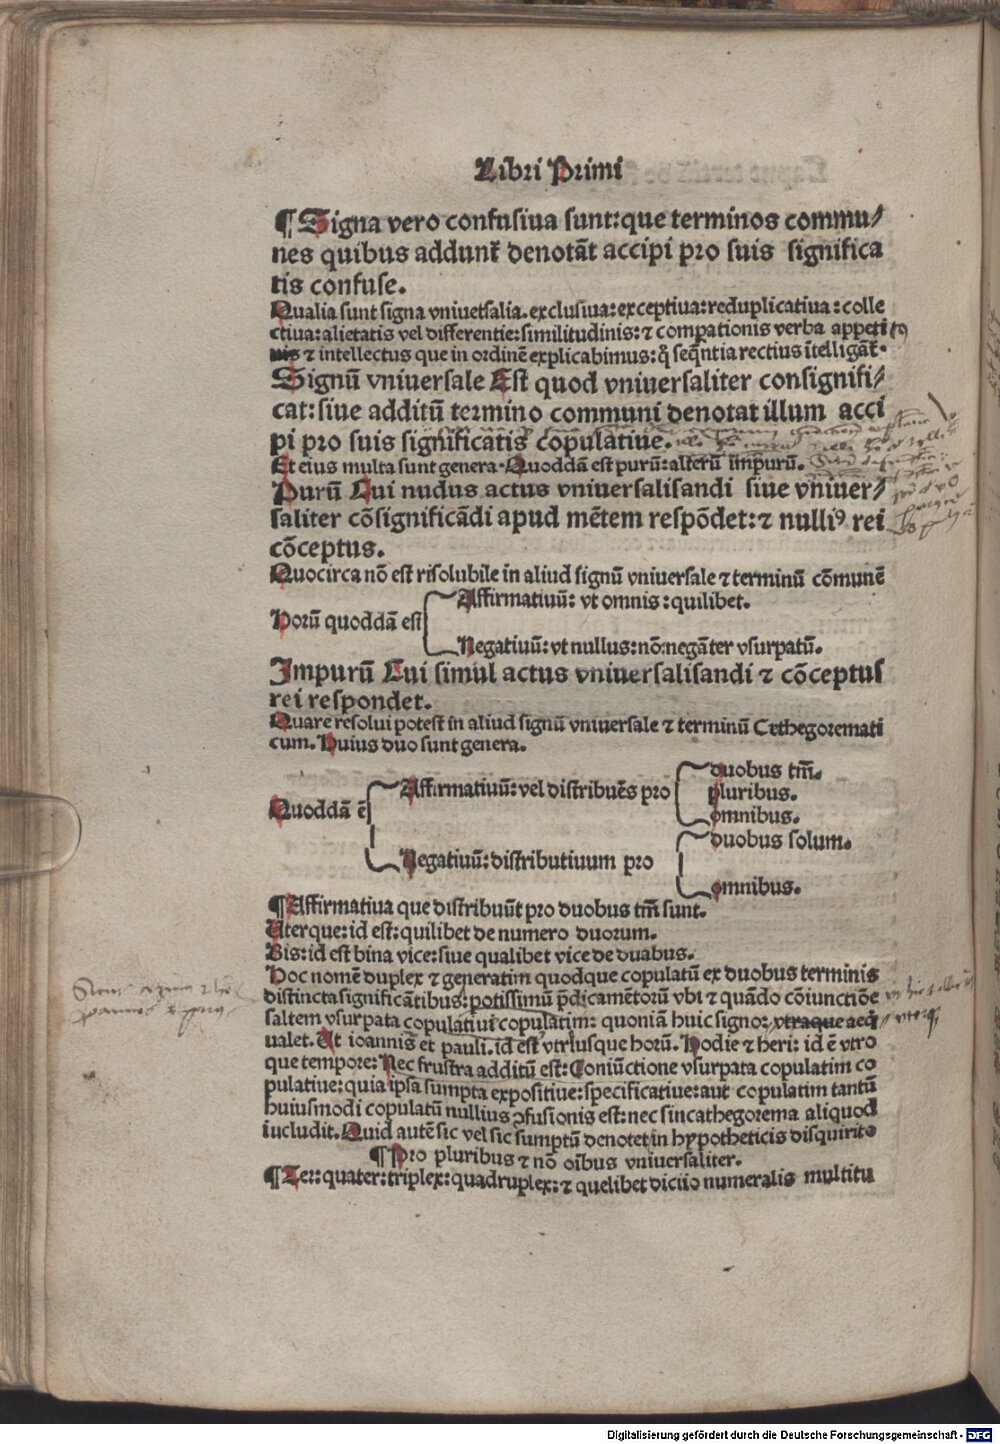 Libri Primi
¶ Signa vero confusiua sunt: que terminos commu⸗
nes quibus addunt᷑ denotāt accipi pro suis significa
tis confuse.
Qualia sunt signa vniuersalia. exclusiua: exceptiua: reduplicatiua: colle
ctiua: alietatis vel differentie: similitudinis: ⁊ compationis verba appeti
uis ⁊ intellectus que in ordinē explicabimus: q̄ seq̄ntia rectius ītelligāt᷑.
Signū vniuersale Est quod vniuersaliter consignifi⸗
cat: siue additū termino communi denotat illum acci
pi pro suis significatis copulatiue.
Et eius multa sunt genera. Quoddā est purū: alterū impurū.
Purū Cui nudus actus vniuersalisandi siue vniuer⸗
saliter cōsignificādi apud mētem respōdet: ⁊ nulliꝰ rei
cōceptus.
Quocirca nō est risolubile in aliud signū vniuersale ⁊ terminū cōmunē
Affirmatiuū: vt omnis: quilibet.
Horū quoddā est
Negatiuū: vt nullus: nō: negāter vsurpatū.
Impurū Cui simul actus vniuersalisandi ⁊ cōceptus
rei respondet.
Quare resolui potest in aliud signū vniuersale ⁊ terminū Cethegoremati
cum. Huius duo sunt genera.
duobus tm̄.
Affirmatiuū: vel distribuēs pro pluribus.
Quoddā ē omnibus.
duobus solum.
Negatiuū: distributiuum pro
omnibus.
¶ Affirmatiua que distribuūt pro duobus tm̄ sunt.
Uterque: id est: quilibet de numero duorum.
Bis: id est bina vice: siue qualibet vice de duabus.
Hoc nomē duplex ⁊ generatim quodque copulatū ex duobus terminis
distincta significātibus: potissimū p̄dicamētorū vbi ⁊ quādo cōiunctiōe
saltem vsurpata copulatiui copulatim: quoniā huic signo: vtraque aeq̄
ualet. Ut ioannis et pauli. id est vtriusque horū. Hodie ⁊ heri: id ē vtro
que tempore: Nec frustra additū est: Coniūctione vsurpata copulatim co
pulatiue: quia ipsa sumpta expositiue: specificatiue: aut copulatim tantū
huiusmodi copulatū nullius ꝯfusionis est: nec sincathegorema aliquod
iucludit. Quid autē sic vel sic sumptū denotet in hypotheticis disquirite
¶ Pro pluribus ⁊ nō oībus vniuersaliter.
¶ Ter: quater: triplex: quadruplex: ⁊ quelibet diciio numeralis multitu
Digitalisierung gefördert durch die Deutsche Forschungsgemeinschaft - DFG